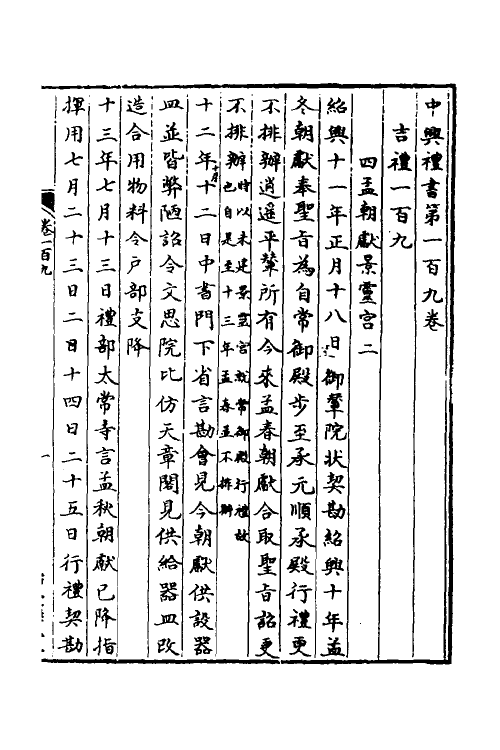 中興禮書第一百九卷
吉禮一百九
四孟朝獻景靈宮二
紹興十一年正月十八日御輦院狀契勘紹興十年孟
冬朝獻奉聖旨為自常御殿步至承元順承殿行禮更
不排辦逍遥平輦所有今來孟春朝獻合取聖旨詔更
不排辦時以未建景靈宮就常御殿行禮故
也自是至十三年孟春並不排辦
十二年十二日中書門下省言勘會見今朝獻供設器
皿並皆弊陋詔令文思院比仿天章閣見供給器皿改
造合用物料令户部支降
十三年七月十三日禮部太常寺言孟秋朝獻已降指
揮用七月二十三日二日十四日二十五日行禮契勘
卷一百九
一